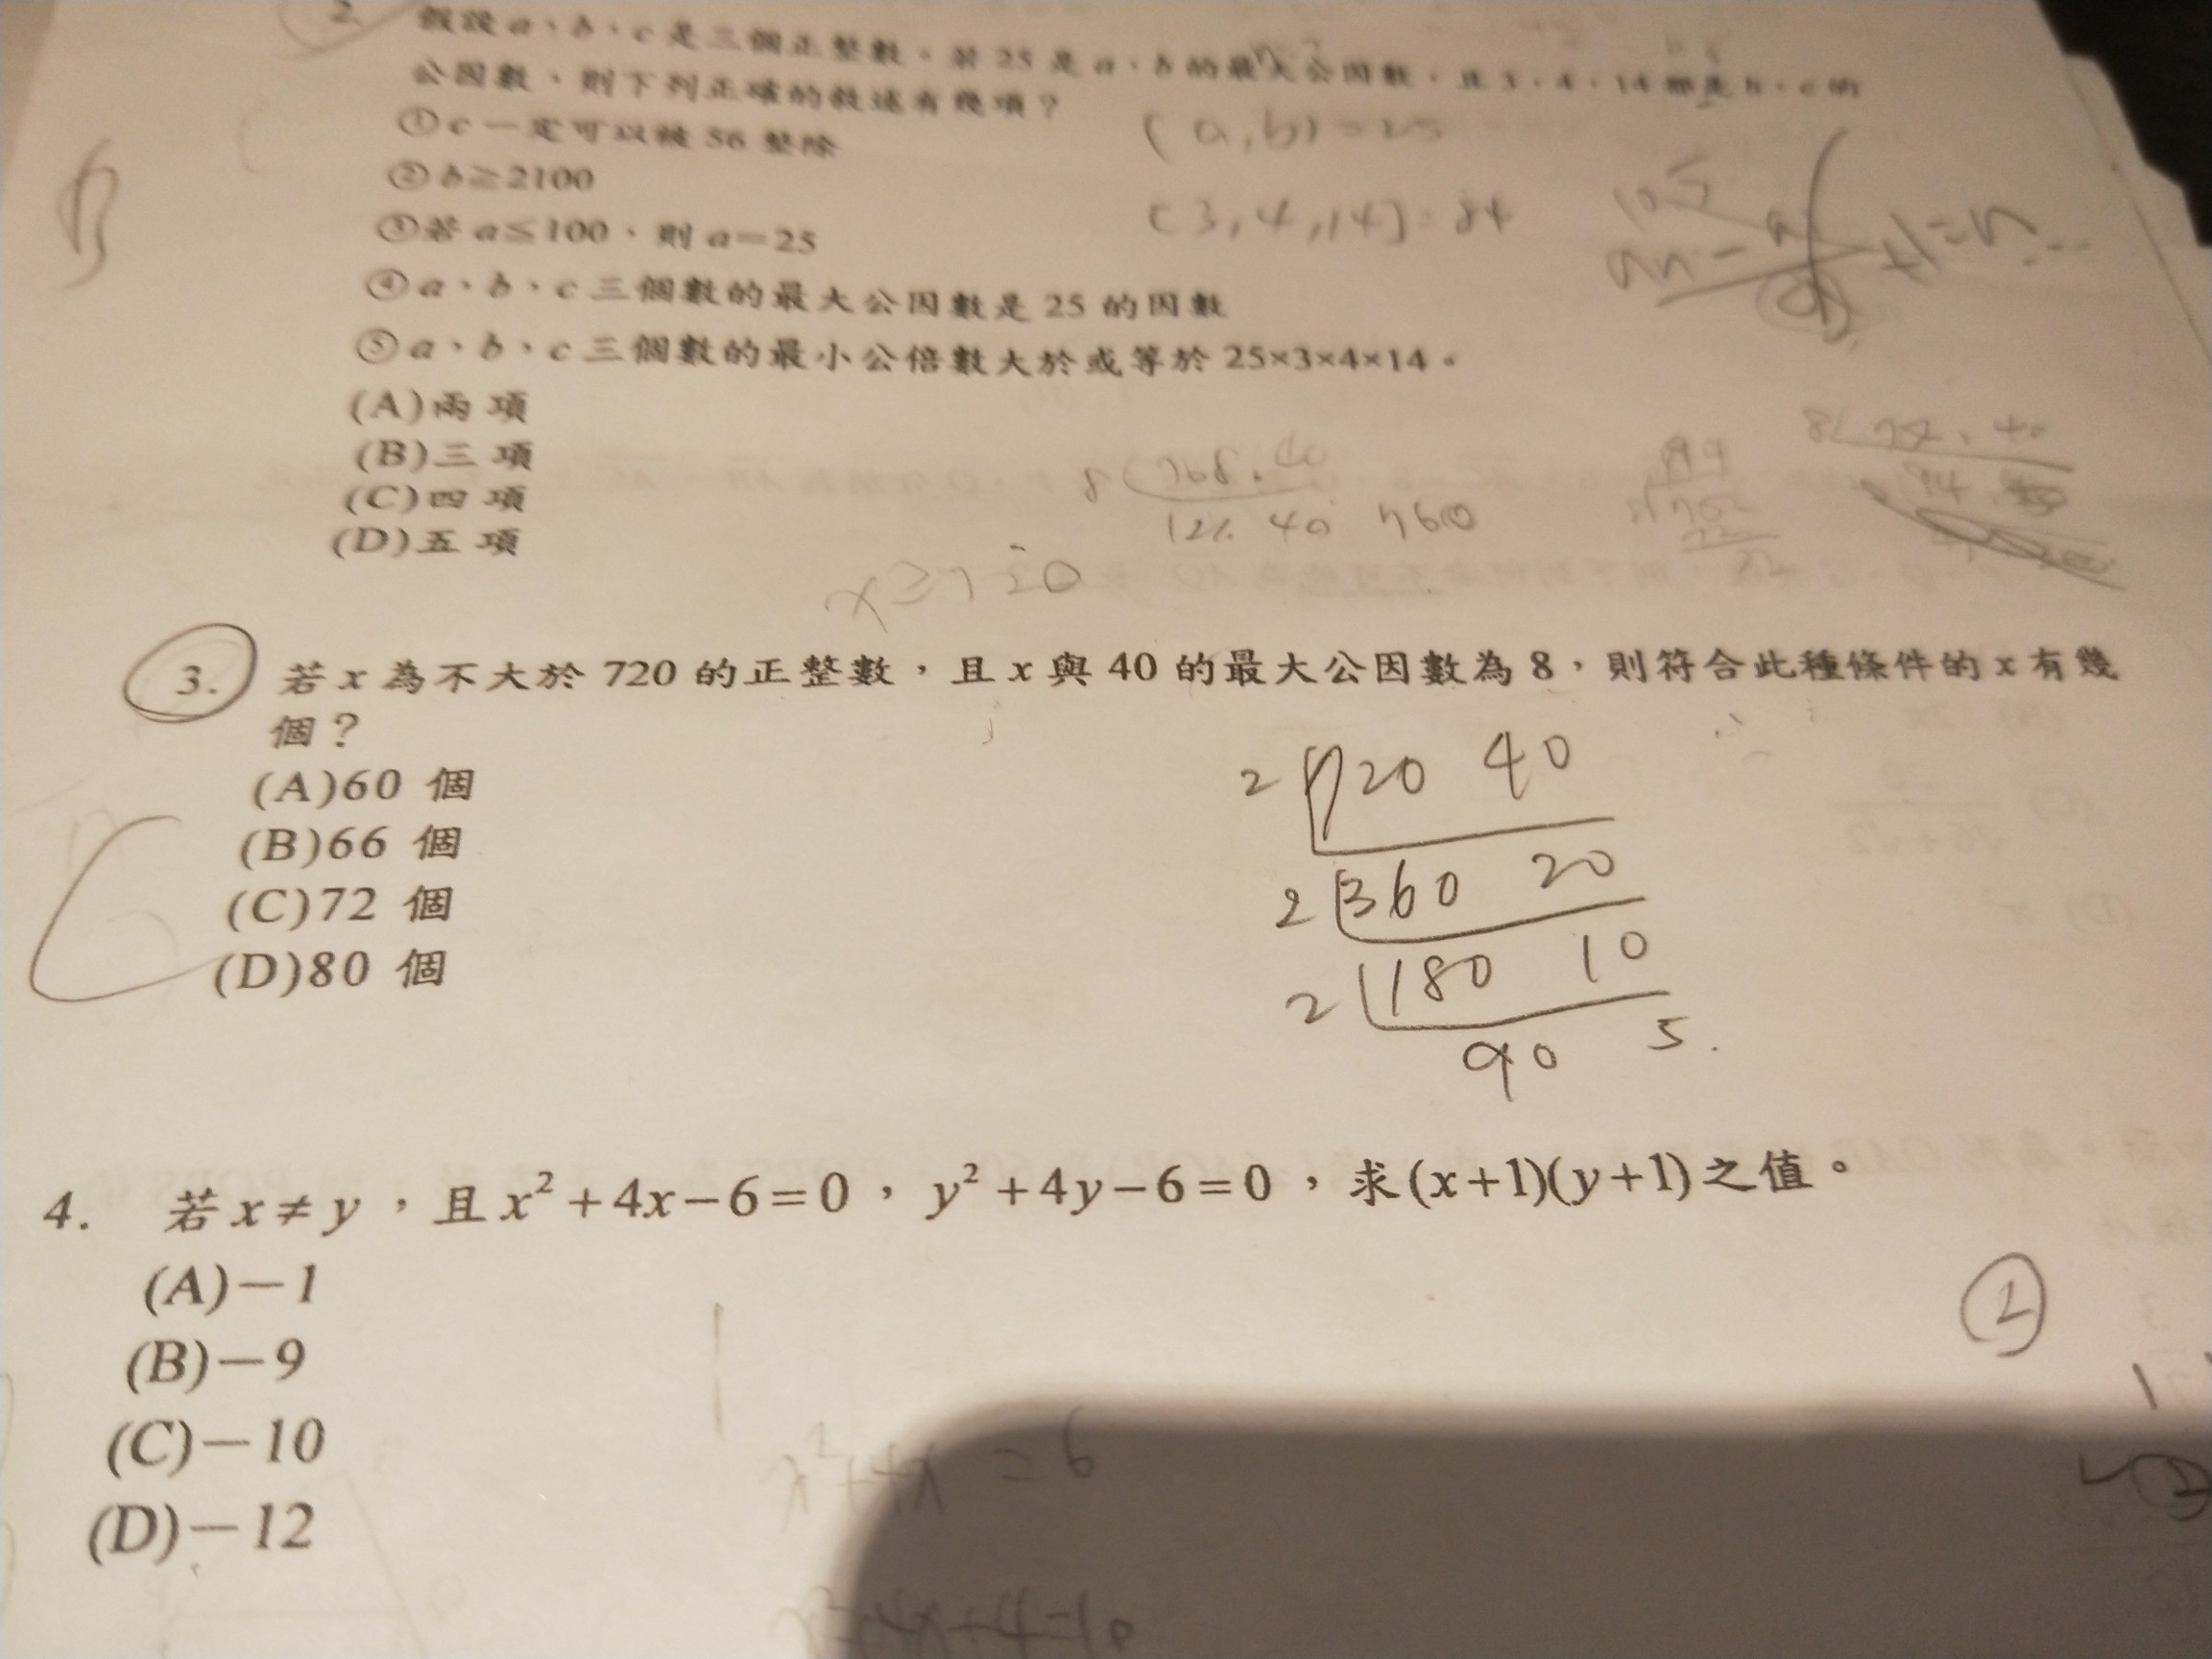 2. 假設 a、b、c 是三個正整數。若 25 是 a、b 的最大公因數,且 3、4、14 都是 b、c 的
公因數,則下列正確的敘述有幾項?
①c 一定可以被 56 整除
②b≧2100
③若 a≦100,則 a=25
④a、b、c 三個數的最大公因數是 25 的因數
⑤a、b、c 三個數的最小公倍數大於或等於 25×3×4×14。
(A)兩項
(B)三項
(C)四項
(D)五項
B
(a,b)=25
[3,4,14]=84
x≥720
3. 若 x 為不大於 720 的正整數,且 x 與 40 的最大公因數為 8,則符合此種條件的 x 有幾
個?
(A)60 個
(B)66 個
(C)72 個
(D)80 個
C
2 720 40
2 360 20
2 180 10
90 5.
4. 若 x≠y,且 x²+4x−6=0,y²+4y−6=0,求(x+1)(y+1)之值。
(A)−1
(B)−9
(C)−10
(D)−12
x²+4x = 6
x²+4x+4=10